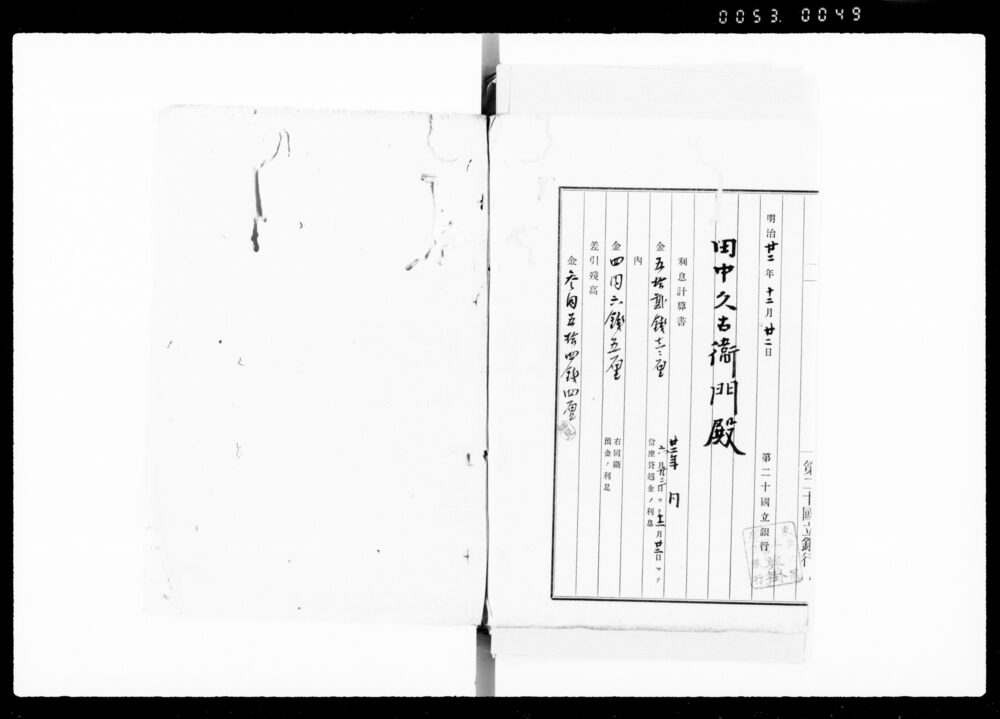 0053. 0049
第二十國立銀行
明治廿二年十二月廿二日
第二十國立銀行
田中久右衛門殿
利息計算書
廿二年
六月廿二日ヨリ十二月廿二日マデ
金五拾貳錢壱厘
當座貸越金ノ利息
内
金四円六錢五厘
右同斷
預金ノ利足
差引殘高
金参円五拾四錢四厘